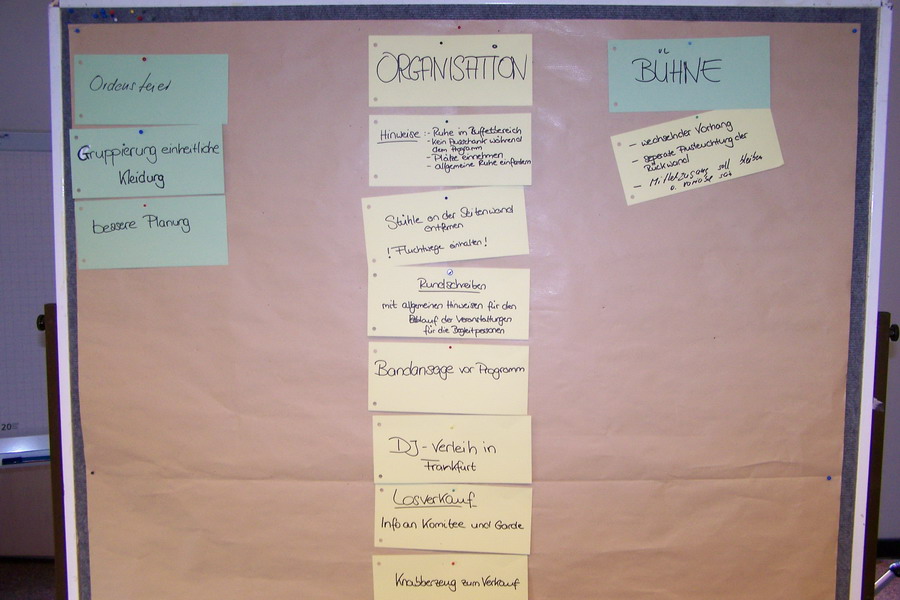 Ordensfeier
Gruppierung einheitliche
Kleidung
bessere Planung
ORGANISATION
Hinweise :- Ruhe im Buffetbereich
- Kein Ausschank während
dem Programm
- Plätze einnehmen
- allgemeine Ruhe einfordern
Stühle an der Seitenwand
entfernen
! Fluchtwege einhalten!
Rundschreiben
mit allgemeinen Hinweisen für den
Ablauf der Veranstaltungen
für die Begleitpersonen
Bandansage vor Programm
DJ-Verleih in
Frankfurt
Losverkauf
Info an Komitee und Garde
Knabberzeug zum Verkauf
BÜHNE
- wechselnder Vorhang
- seperate Ausleuchtung der
Rückwand
- soll bleiben
20